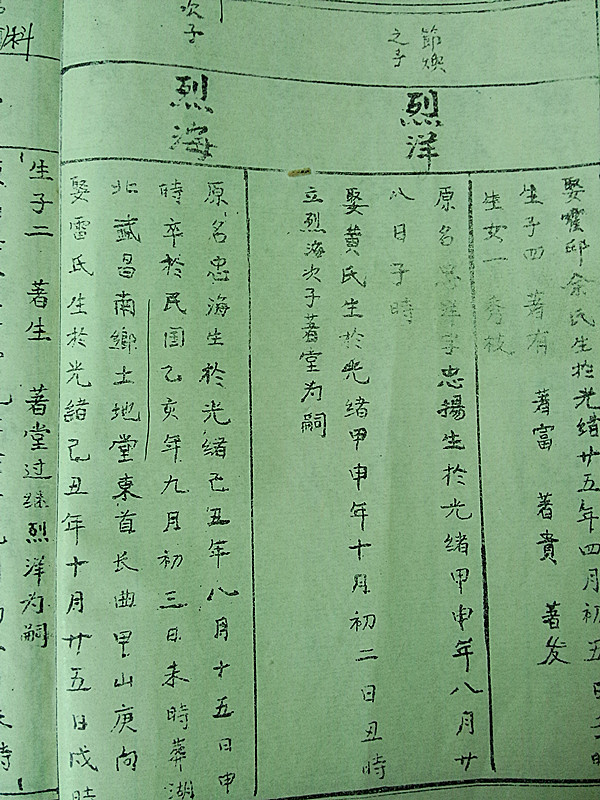 節煥
之子
烈洋
次子
烈海
娶霍邱余氏生於光緒廿五年四月初五日子時
生子四 著有 著富 著貴 著发
生女一 秀枝
原名忠洋字忠揚生於光緒甲申年八月廿
八日子時
娶黄氏生於光绪甲申年十月初二日丑時
立烈海次子著堂为嗣
原名忠海生於光緒己丑年八月十五日申
時卒於民国乙亥年九月初三日未時葬湖
北武昌南鄉土地堂東首长曲甲山庚向
娶雷氏生於光緒己丑年十月廿五日戌時
生子二 著生 著堂过继烈洋为嗣